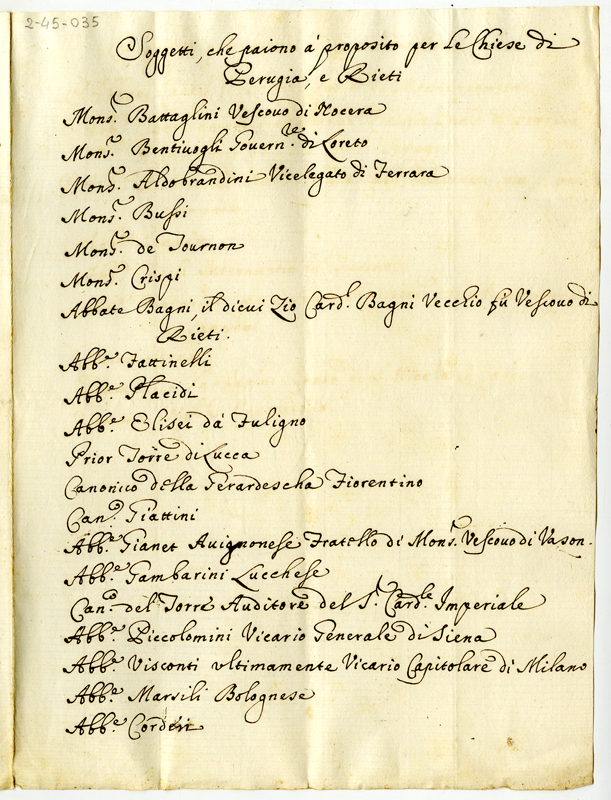 2-45-035
Soggetti, che paiono á proposito per le Chiese di
Perugia, e Rieti
Mons.r Battaglini Vescovo di Nocera
Mons.r Bentivogli Govern.re di Loreto
Mons.r Aldobrandini Vicelegato di Ferrara
Mons.r Bussi
Mons.r de Tournon
Mons.r Crispi
Abbate Bagni, il di cui Zio Card.l Bagni Vecchio fù Vescovo di
Rieti.
Abb.e Fattinelli
Abb.e Placidi
Abb.e Elisei da Fuligno
Prior Torre di Lucca
Canonico della Gerardescha Fiorentino
Can.o Giattini
Abb.e Gianet Auignonese Fratello di Mons.r Vescovo di Vason.
Abb.e Gambarini Lucchese
Can.o del Torre Auditore del S.r Card.le Imperiale
Abb.e Piccolomini Vicario Generale di Siena
Abb.e Visconti vltimamente Vicario Capitolare di Milano
Abb.e Marsili Bolognese
Abb.e